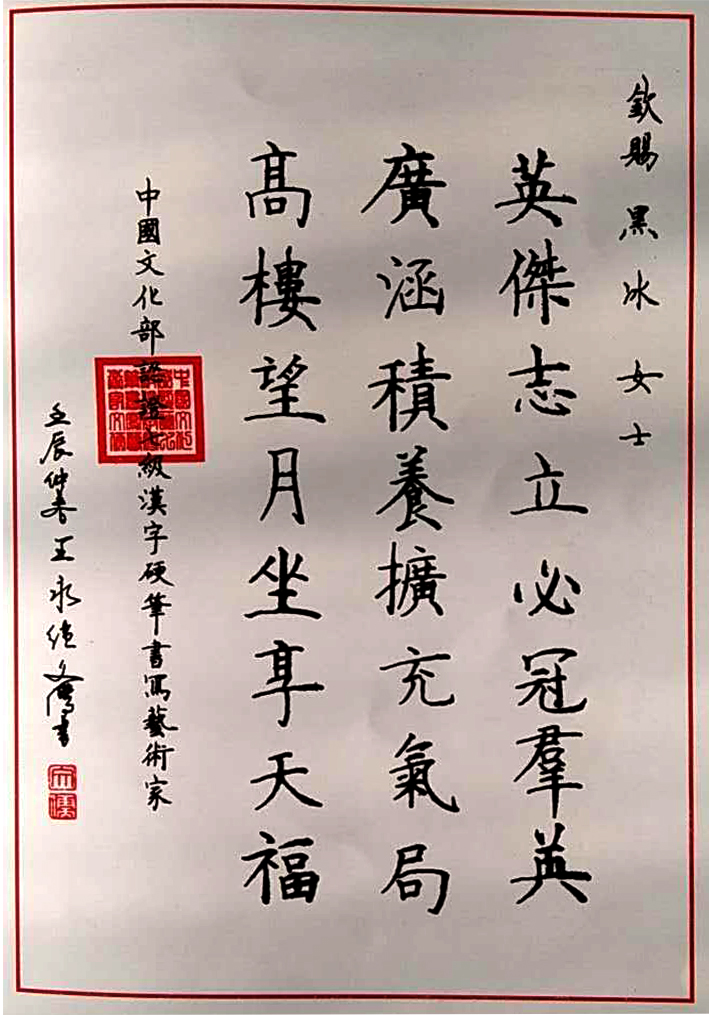 欽賜黑冰女士
英傑志立必冠羣英
廣涵積養擴充氣局
高樓望月坐享天福
中國文化部認證七級漢字硬筆書寫藝術家
壬辰仲春王永德文儒書